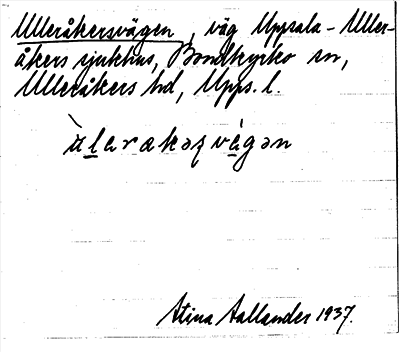 Ulleråkersvägen, väg Uppsala - Uller-
åkers sjukhus, Bondkyrko sn,
Ulleråkers hd, Upps. l.
Stina Aallander 1937.